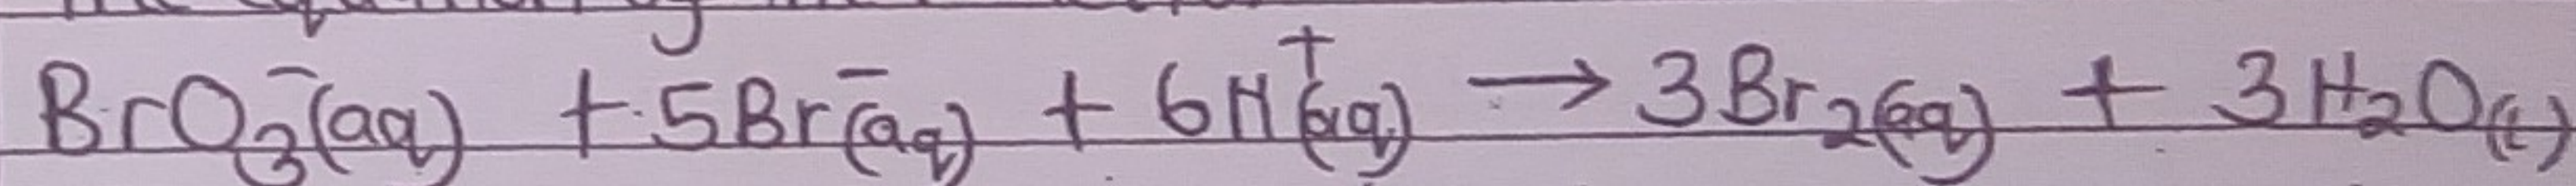 BrO₃⁻(aq) + 5Br⁻(aq) + 6H⁺(aq) → 3Br₂(aq) + 3H₂O(l)